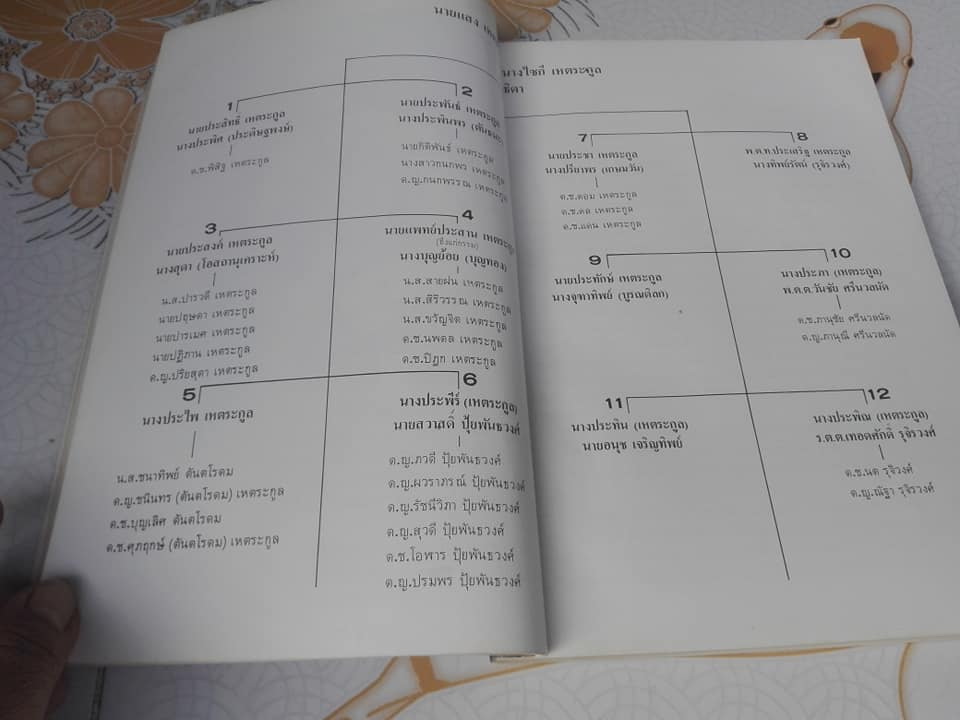 นายแสง
1
นายประสิทธิ์ เหตระกูล
นางประพิศ (ประดิษฐพงษ์)
ด.ช.พิสิฐ เหตระกูล
2
นายประพันธ์ เหตระกูล
นางประพินพร
นายกิติพันธ์ เหตระกูล
นางสาวกนกพร เหตระกูล
ด.ญ.กนกพรรณ เหตระกูล
3
นายประสงค์ เหตระกูล
นางสุดา (โอสถานุเคราะห์)
น.ส.ปารวดี เหตระกูล
นายปฤษดา เหตระกูล
นายปารเมศ เหตระกูล
นายปฏิภาน เหตระกูล
ด.ญ.ปริยสุดา เหตระกูล
4
นายแพทย์ประสาน เหตระกูล
(ถึงแก่กรรม)
นางบุญย้อย (บุญทอง)
น.ส.สายฝน เหตระกูล
น.ส.สิริวรรณ เหตระกูล
น.ส.ขวัญจิต เหตระกูล
ด.ช.นพดล เหตระกูล
ด.ช.ปิฎก เหตระกูล
5
นางประไพ เหตระกูล
น.ส.ชนาทิพย์ ตันตโรดม
ด.ญ.ชนินทร (ตันตโรดม) เหตระกูล
ด.ช.บุญเลิศ ตันตโรดม
ด.ช.ศุภฤกษ์ (ตันตโรดม) เหตระกูล
6
นางประพีร์ (เหตระกูล)
นายสวาสดิ์ ปุ้ยพันธวงศ์
ด.ญ.ภวดี ปุ้ยพันธวงศ์
ด.ญ.ผวราภรณ์ ปุ้ยพันธวงศ์
ด.ญ.รัชนีวิภา ปุ้ยพันธวงศ์
ด.ญ.สุวดี ปุ้ยพันธวงศ์
ด.ช.โอฬาร ปุ้ยพันธวงศ์
ด.ญ.ปรมพร ปุ้ยพันธวงศ์
นางไซกี เหตระกูล
ธิดา
7
นายประชา เหตระกูล
นางปรียาพร (เกษมวัน)
ด.ช.ดอม เหตระกูล
ด.ช.ดล เหตระกูล
ด.ช.แดน เหตระกูล
8
พ.ต.ท.ประเสริฐ เหตระกูล
นางทิพย์รัตน์ (รุจิรวงศ์)
9
นายประทักษ์ เหตระกูล
นางจุฑาทิพย์ (บูรณดิลก)
10
นางประภา (เหตระกูล)
พ.ต.ต.วันชัย ศรีนวลนัด
ด.ช.ภานุชัย ศรีนวลนัด
ด.ญ.ภานุณี ศรีนวลนัด
11
นางประทิน (เหตระกูล)
นายอนุช เจริญทิพย์
12
นางประพิณ (เหตระกูล)
ร.ต.ต.เทอดศักดิ์ รุจิรวงศ์
ด.ช.นด รุจิวงศ์
ด.ญ.ณัฐา รุจิรวงศ์